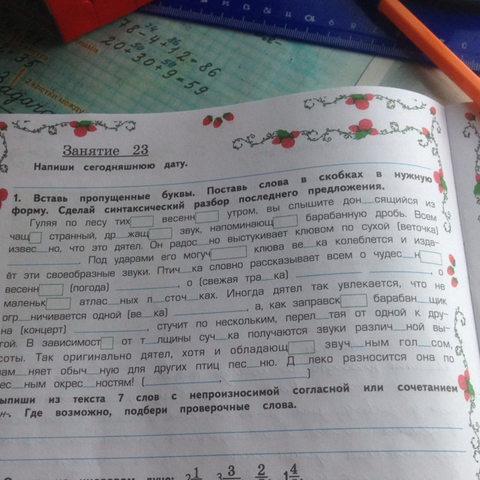 78-4+12=86
20-30+9=59
Занятие 23
Напиши сегодняшнюю дату.
1. Вставь пропущенные буквы. Поставь слова в скобках в нужную
форму. Сделай синтаксический разбор последнего предложения.
Гуляя по лесу тих весенн утром, вы слышите дон__сящийся из
чащ странный, др__жащ звук, напоминающ барабанную дробь. Всем
извес__но, что это дятел. Он радос__но выстукивает клювом по сухой (веточка)
Под ударами его могуч клюва ве__ка колеблется и изда-
ёт эти своеобразные звуки. Птич__ка словно рассказывает всем о чудес__н
весенн (погода) , о (свежая тра__ка) , о
маленьк атлас__ных л__сточ__ках. Иногда дятел так увлекается, что не
огр__ничивается одной (ве__ка) , а, как заправск барабан__щик
на (концерт) , стучит по нескольким, перел__тая от одной к дру-
гой. В зависимост от т__лщины суч__ка получаются звуки различ__ной вы-
соты. Так оригинально дятел, хотя и обладающ звуч__ным гол__сом,
зам__няет обыч__ную для других птиц пес__ню. Д__леко разносится она по
ес__ным окрес__ностям! (__, __)
ыпиши из текста 7 слов с непроизносимой согласной или сочетанием
н-. Где возможно, подбери проверочные слова.